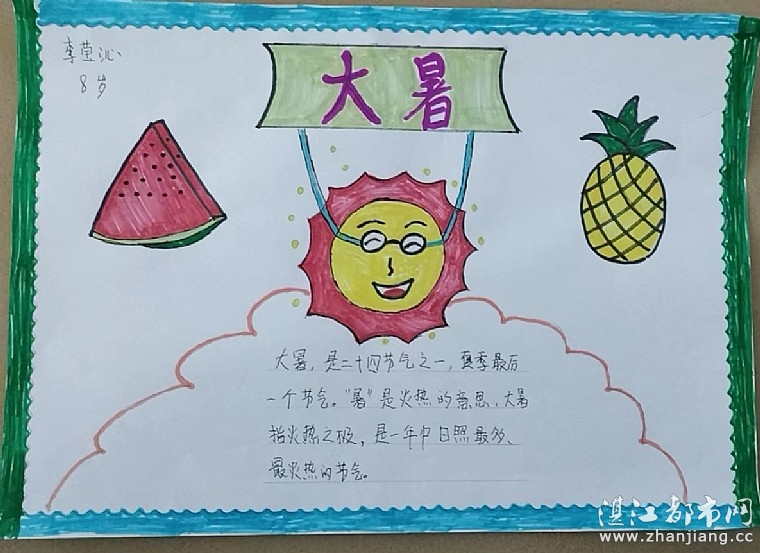 李莹沁
8岁
大暑
大暑，是二十四节气之一，夏季最后
一个节气。"暑"是火热的意思，大暑
指火热之极，是一年中日照最多、
最火热的节气。
湛江都市网
www.zhanjiang.cc